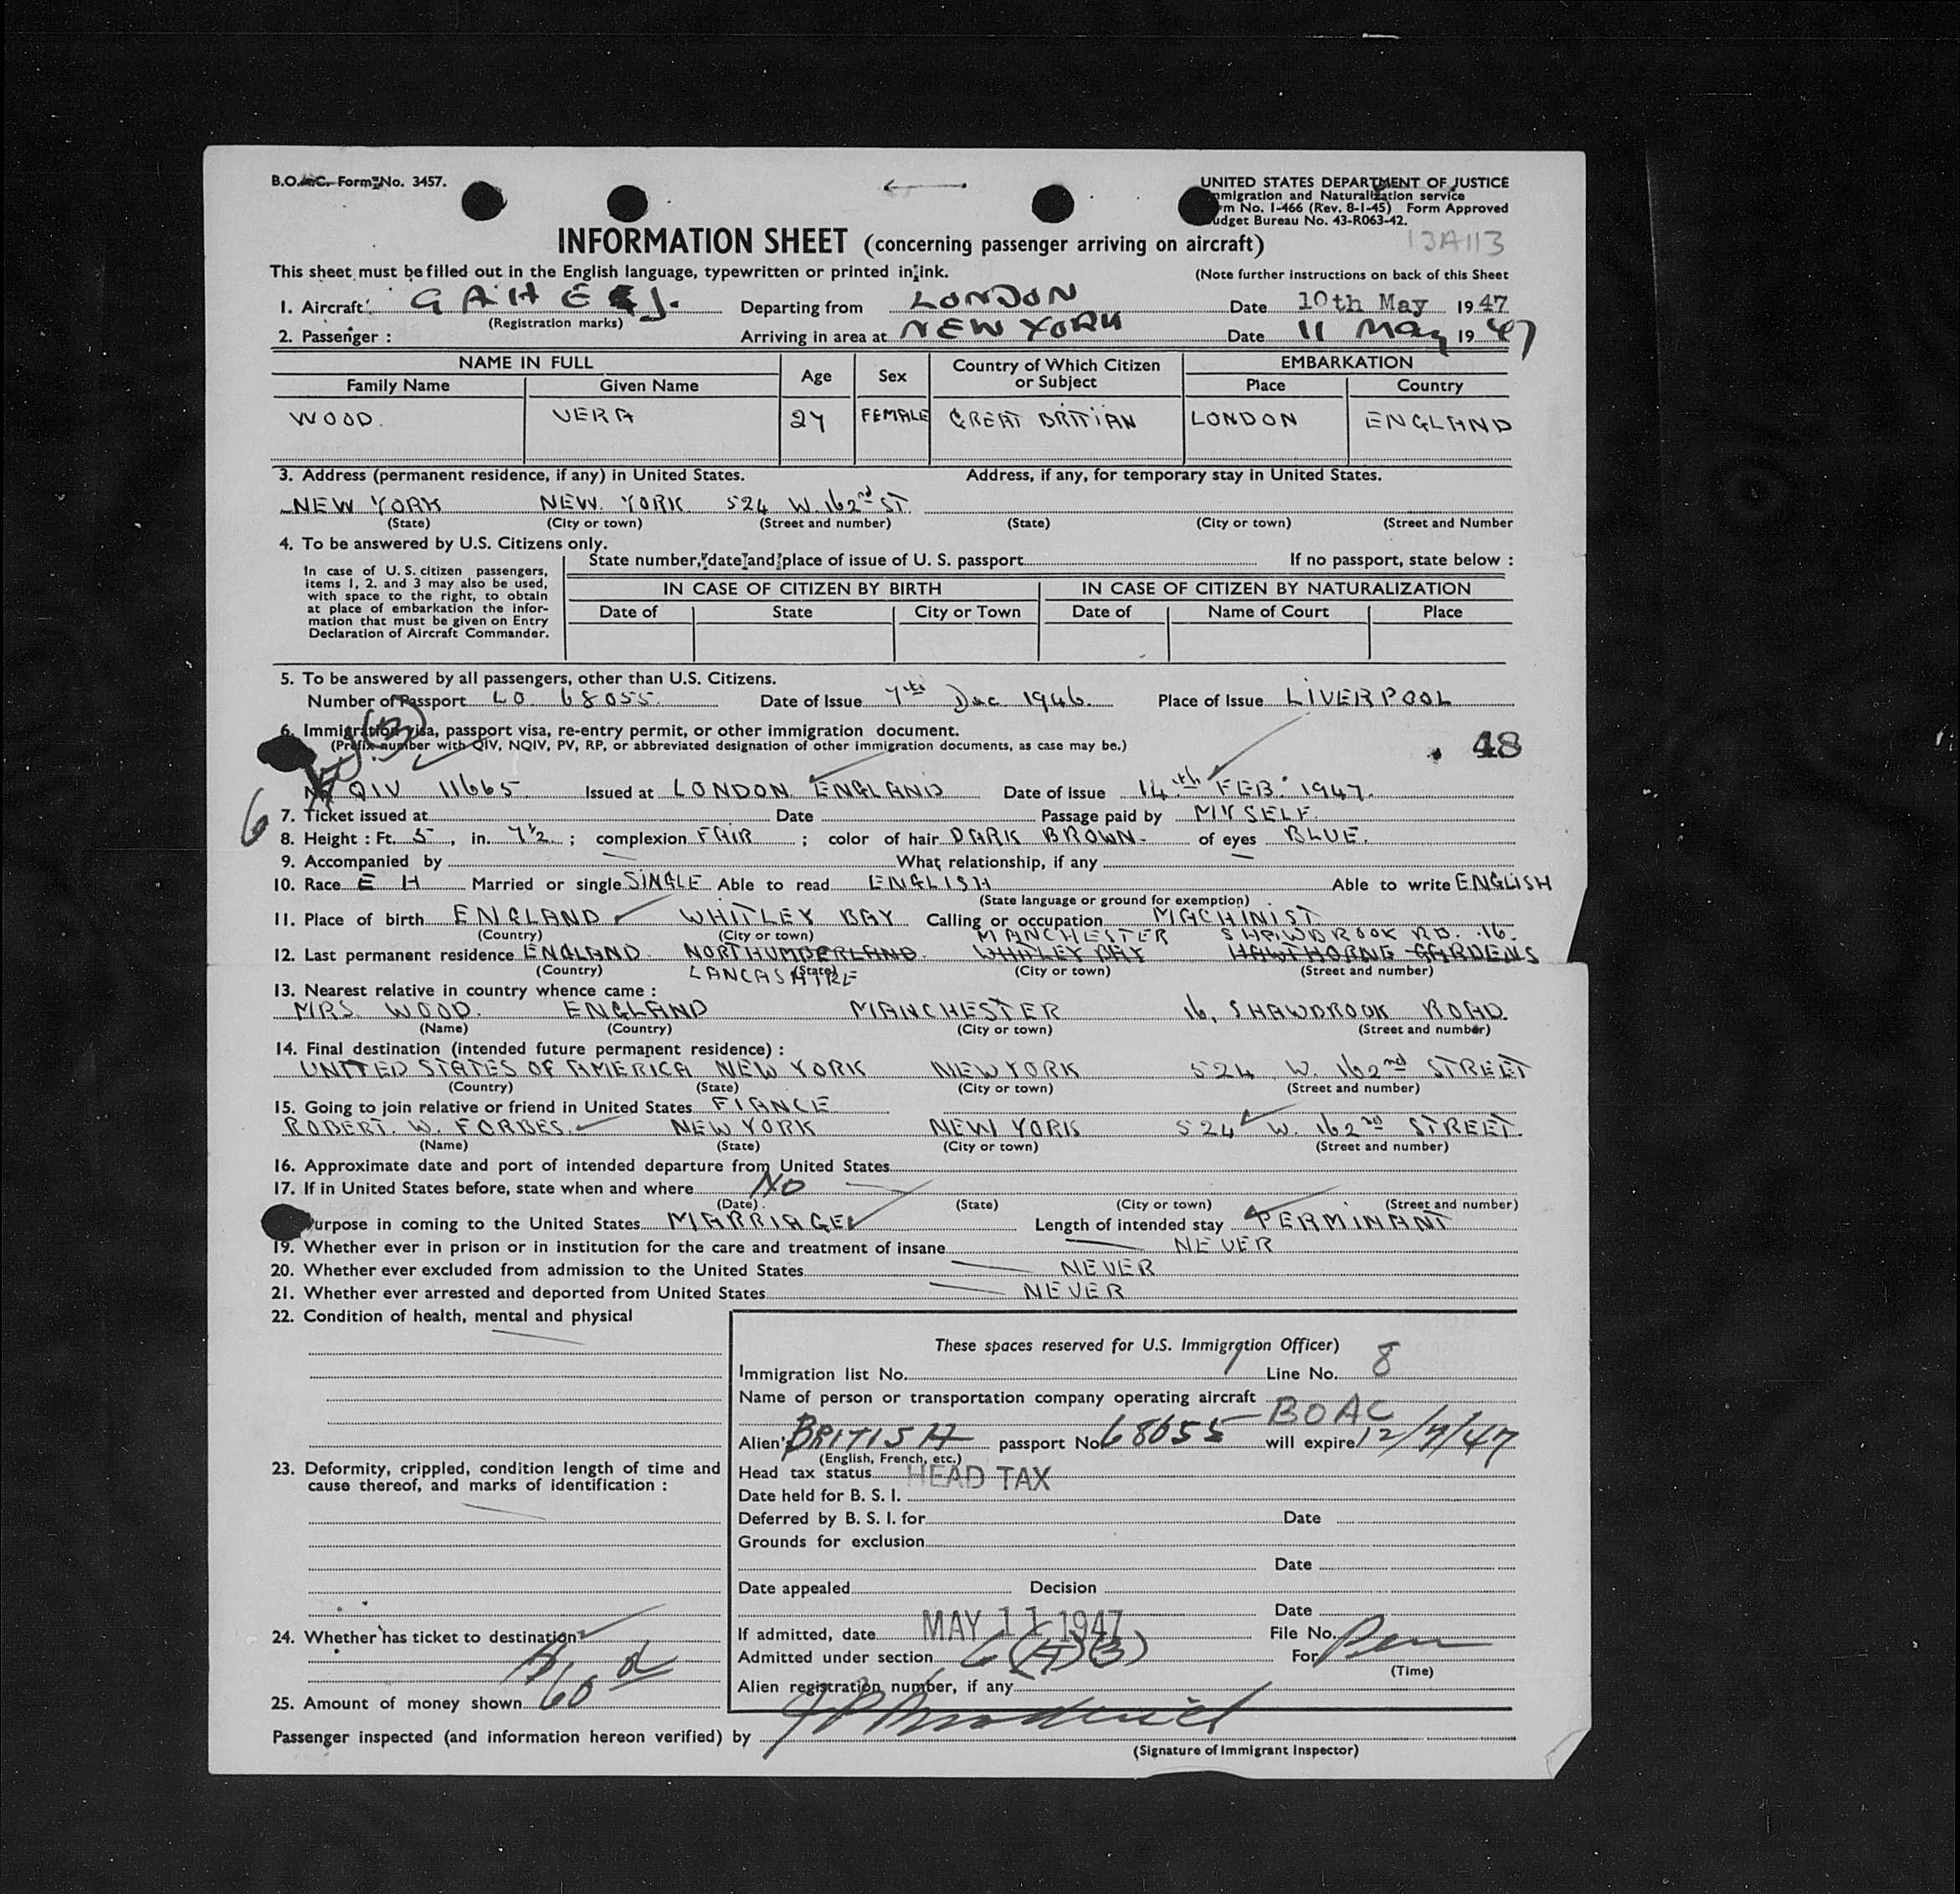 B.O.A.C. Form No. 3457.
UNITED STATES DEPARTMENT OF JUSTICE
mmigration and Naturalization service
rm No. I-466 (Rev. 8-1-45) Form Approved
udget Bureau No. 43-R063-42.
13A113
INFORMATION SHEET (concerning passenger arriving on aircraft)
This sheet must be filled out in the English language, typewritten or printed in ink. (Note further instructions on back of this Sheet
1. Aircraft: G AHE J. Departing from LONDON Date 10th May 1947
(Registration marks)
2. Passenger : Arriving in area at NEW YORK Date 11 May 1947
NAME IN FULL Age Sex Country of Which Citizen or Subject EMBARKATION
Family Name Given Name Place Country
WOOD. VERA 27 FEMALE GREAT BRITIAN LONDON ENGLAND
3. Address (permanent residence, if any) in United States. Address, if any, for temporary stay in United States.
NEW YORK NEW. YORK. 524 W. 162nd ST.
(State) (City or town) (Street and number) (State) (City or town) (Street and Number
4. To be answered by U.S. Citizens only.
State number, date and place of issue of U. S. passport If no passport, state below :
In case of U. S. citizen passengers,
items 1, 2. and 3 may also be used,
with space to the right, to obtain
at place of embarkation the infor-
mation that must be given on Entry
Declaration of Aircraft Commander.
IN CASE OF CITIZEN BY BIRTH IN CASE OF CITIZEN BY NATURALIZATION
Date of State City or Town Date of Name of Court Place
5. To be answered by all passengers, other than U.S. Citizens.
Number of Passport LO. 68055. Date of Issue 7th Dec 1946. Place of Issue LIVERPOOL
6. Immigration visa, passport visa, re-entry permit, or other immigration document.
(Prefix number with QIV, NQIV, PV, RP, or abbreviated designation of other immigration documents, as case may be.)
48
No QIV 11665. Issued at LONDON ENGLAND Date of Issue 14th FEB. 1947.
6
7. Ticket issued at Date Passage paid by MYSELF.
8. Height : Ft. 5 , in. 7½ ; complexion FAIR ; color of hair DARK BROWN. of eyes BLUE.
9. Accompanied by What relationship, if any
10. Race E H Married or single SINGLE Able to read ENGLISH Able to write ENGLISH
(State language or ground for exemption)
11. Place of birth ENGLAND WHITLEY BAY Calling or occupation MACHINIST
(Country) (City or town)
MANCHESTER SHAWBROOK RD. 16.
12. Last permanent residence ENGLAND. NORTHUMBERLAND. WHITLEY BAY HAWTHORNE GARDENS
(Country) LANCASHIRE (State) (City or town) (Street and number)
13. Nearest relative in country whence came :
MRS. WOOD. ENGLAND MANCHESTER 16, SHAWBROOK ROAD.
(Name) (Country) (City or town) (Street and number)
14. Final destination (intended future permanent residence) :
UNITED STATES OF AMERICA NEW YORK NEW YORK 524 W. 162nd STREET
(Country) (State) (City or town) (Street and number)
15. Going to join relative or friend in United States FIANCE
ROBERT. W. FORBES. NEW YORK NEW YORK 524 W. 162nd STREET.
(Name) (State) (City or town) (Street and number)
16. Approximate date and port of intended departure from United States
17. If in United States before, state when and where NO
(Date) (State) (City or town) (Street and number)
urpose in coming to the United States MARRIAGE Length of intended stay PERMINANT
19. Whether ever in prison or in institution for the care and treatment of insane NEVER
20. Whether ever excluded from admission to the United States NEVER
21. Whether ever arrested and deported from United States NEVER
22. Condition of health, mental and physical
These spaces reserved for U.S. Immigration Officer)
Immigration list No. 1 Line No. 8
Name of person or transportation company operating aircraft
BOAC
Alien's BRITISH passport No. 68055 will expire 12/7/47
(English, French, etc.)
23. Deformity, crippled, condition length of time and
cause thereof, and marks of identification :
Head tax status HEAD TAX
Date held for B. S. I.
Deferred by B. S. I. for Date
Grounds for exclusion
Date
Date appealed Decision
Date
24. Whether has ticket to destination
If admitted, date MAY 11 1947 File No.
Admitted under section 6(A)(3) For Perm
(Time)
Alien registration number, if any
25. Amount of money shown 60
Passenger inspected (and information hereon verified) by
(Signature of Immigrant Inspector)